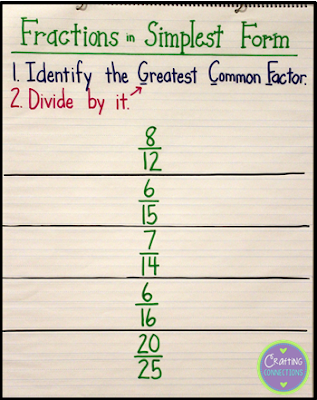 Fractions in Simplest Form
1. Identify the Greatest Common Factor.
2. Divide by it.
8
12
6
15
7
14
6
16
20
25
Crafting
CONNECTIONS